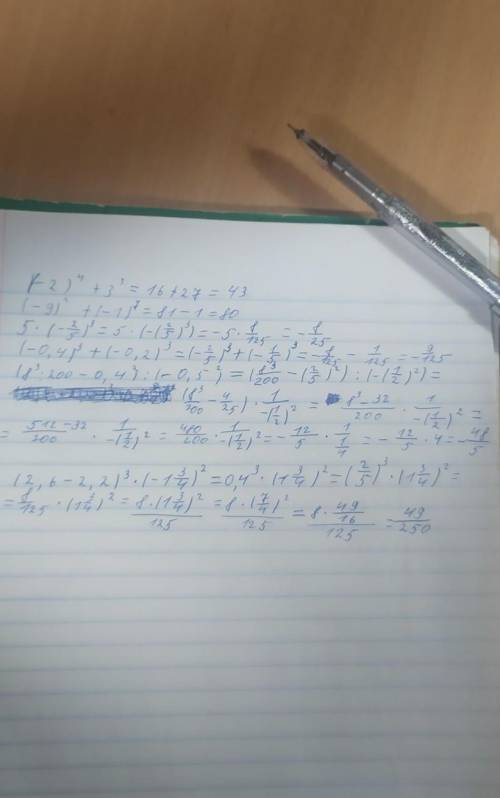 (-2)⁴ + 3³ = 16 + 27 = 43
(-9)² + (-1)⁷ = 81 - 1 = 80
5 · (-2/5)³ = 5 · (-(2/5)³) = -5 · 8/125 = -8/25
(-0,4)³ + (-0,2)³ = (-2/5)³ + (-1/5)³ = -8/125 - 1/125 = -9/125
(8³ : 200 - 0,4²) : (-0,5²) = (8³/200 - (2/5)²) : (-(1/2)²) =
(8³/200 - 4/25) · 1/-(1/2)² = 8³-32/200 · 1/-(1/2)² =
= 512-32/200 · 1/-(1/2)² = 480/200 · 1/-(1/2)² = -12/5 · 1/1/4 = -12/5 · 4 = -48/5
(2,6 - 2,2)³ · (-1 3/4)² = 0,4³ · (1 3/4)² = (2/5)³ · (1 3/4)² =
= 8/125 · (1 3/4)² = 8 · (1 3/4)²/125 = 8 · (7/4)²/125 = 8 · 49/16/125 = 49/250